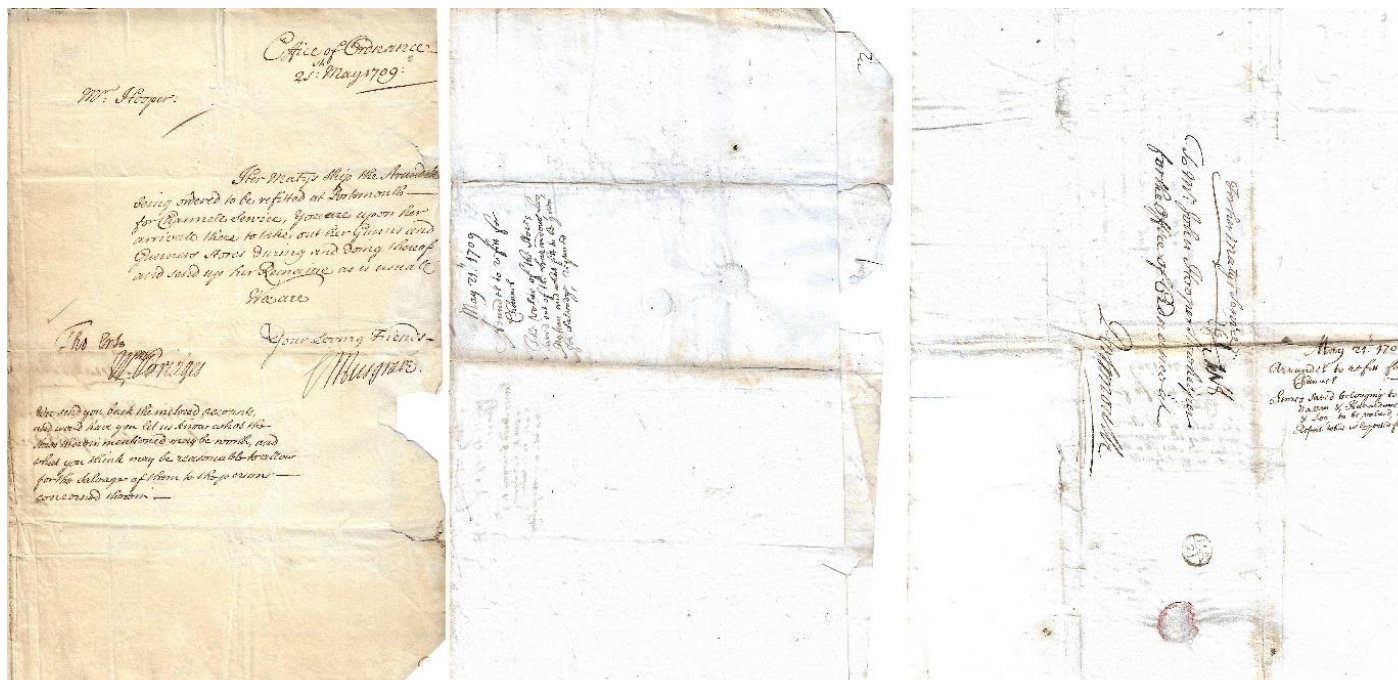 Office of Ordnance
21st. May 1709.
Mr. Hooper.
Her Matys Ship the Arundel
being ordered to be refitted at Portsmouth
for Channele Service, You are upon her
arrivall there to take out her Gunns and
Gunners Stores during and doing thereof
and send up her Remaine as is usuall
Wee are
Your Loving Friends
Tho Erle
Wm Bridges
CMusgrave.
We send you back the inclosed accounts,
and would have you let us know what the
Stores therein mentioned may be worth, and
what you think may be reasonable to allow
for the Salvage of them to the persons
concerned therein
May 21st. 1709
Arundel to refit for
Channel
The Value of the Stores
saved out of the
and what fit to be given
for Salvage
For her Matys Service
To Mr. John Hooper Storekeeper
for the Office of Ordnance at
Portsmouth
May 21st. 170
Arrundel to refit for
Channel
Stores sav'd belonging to
to be valued,